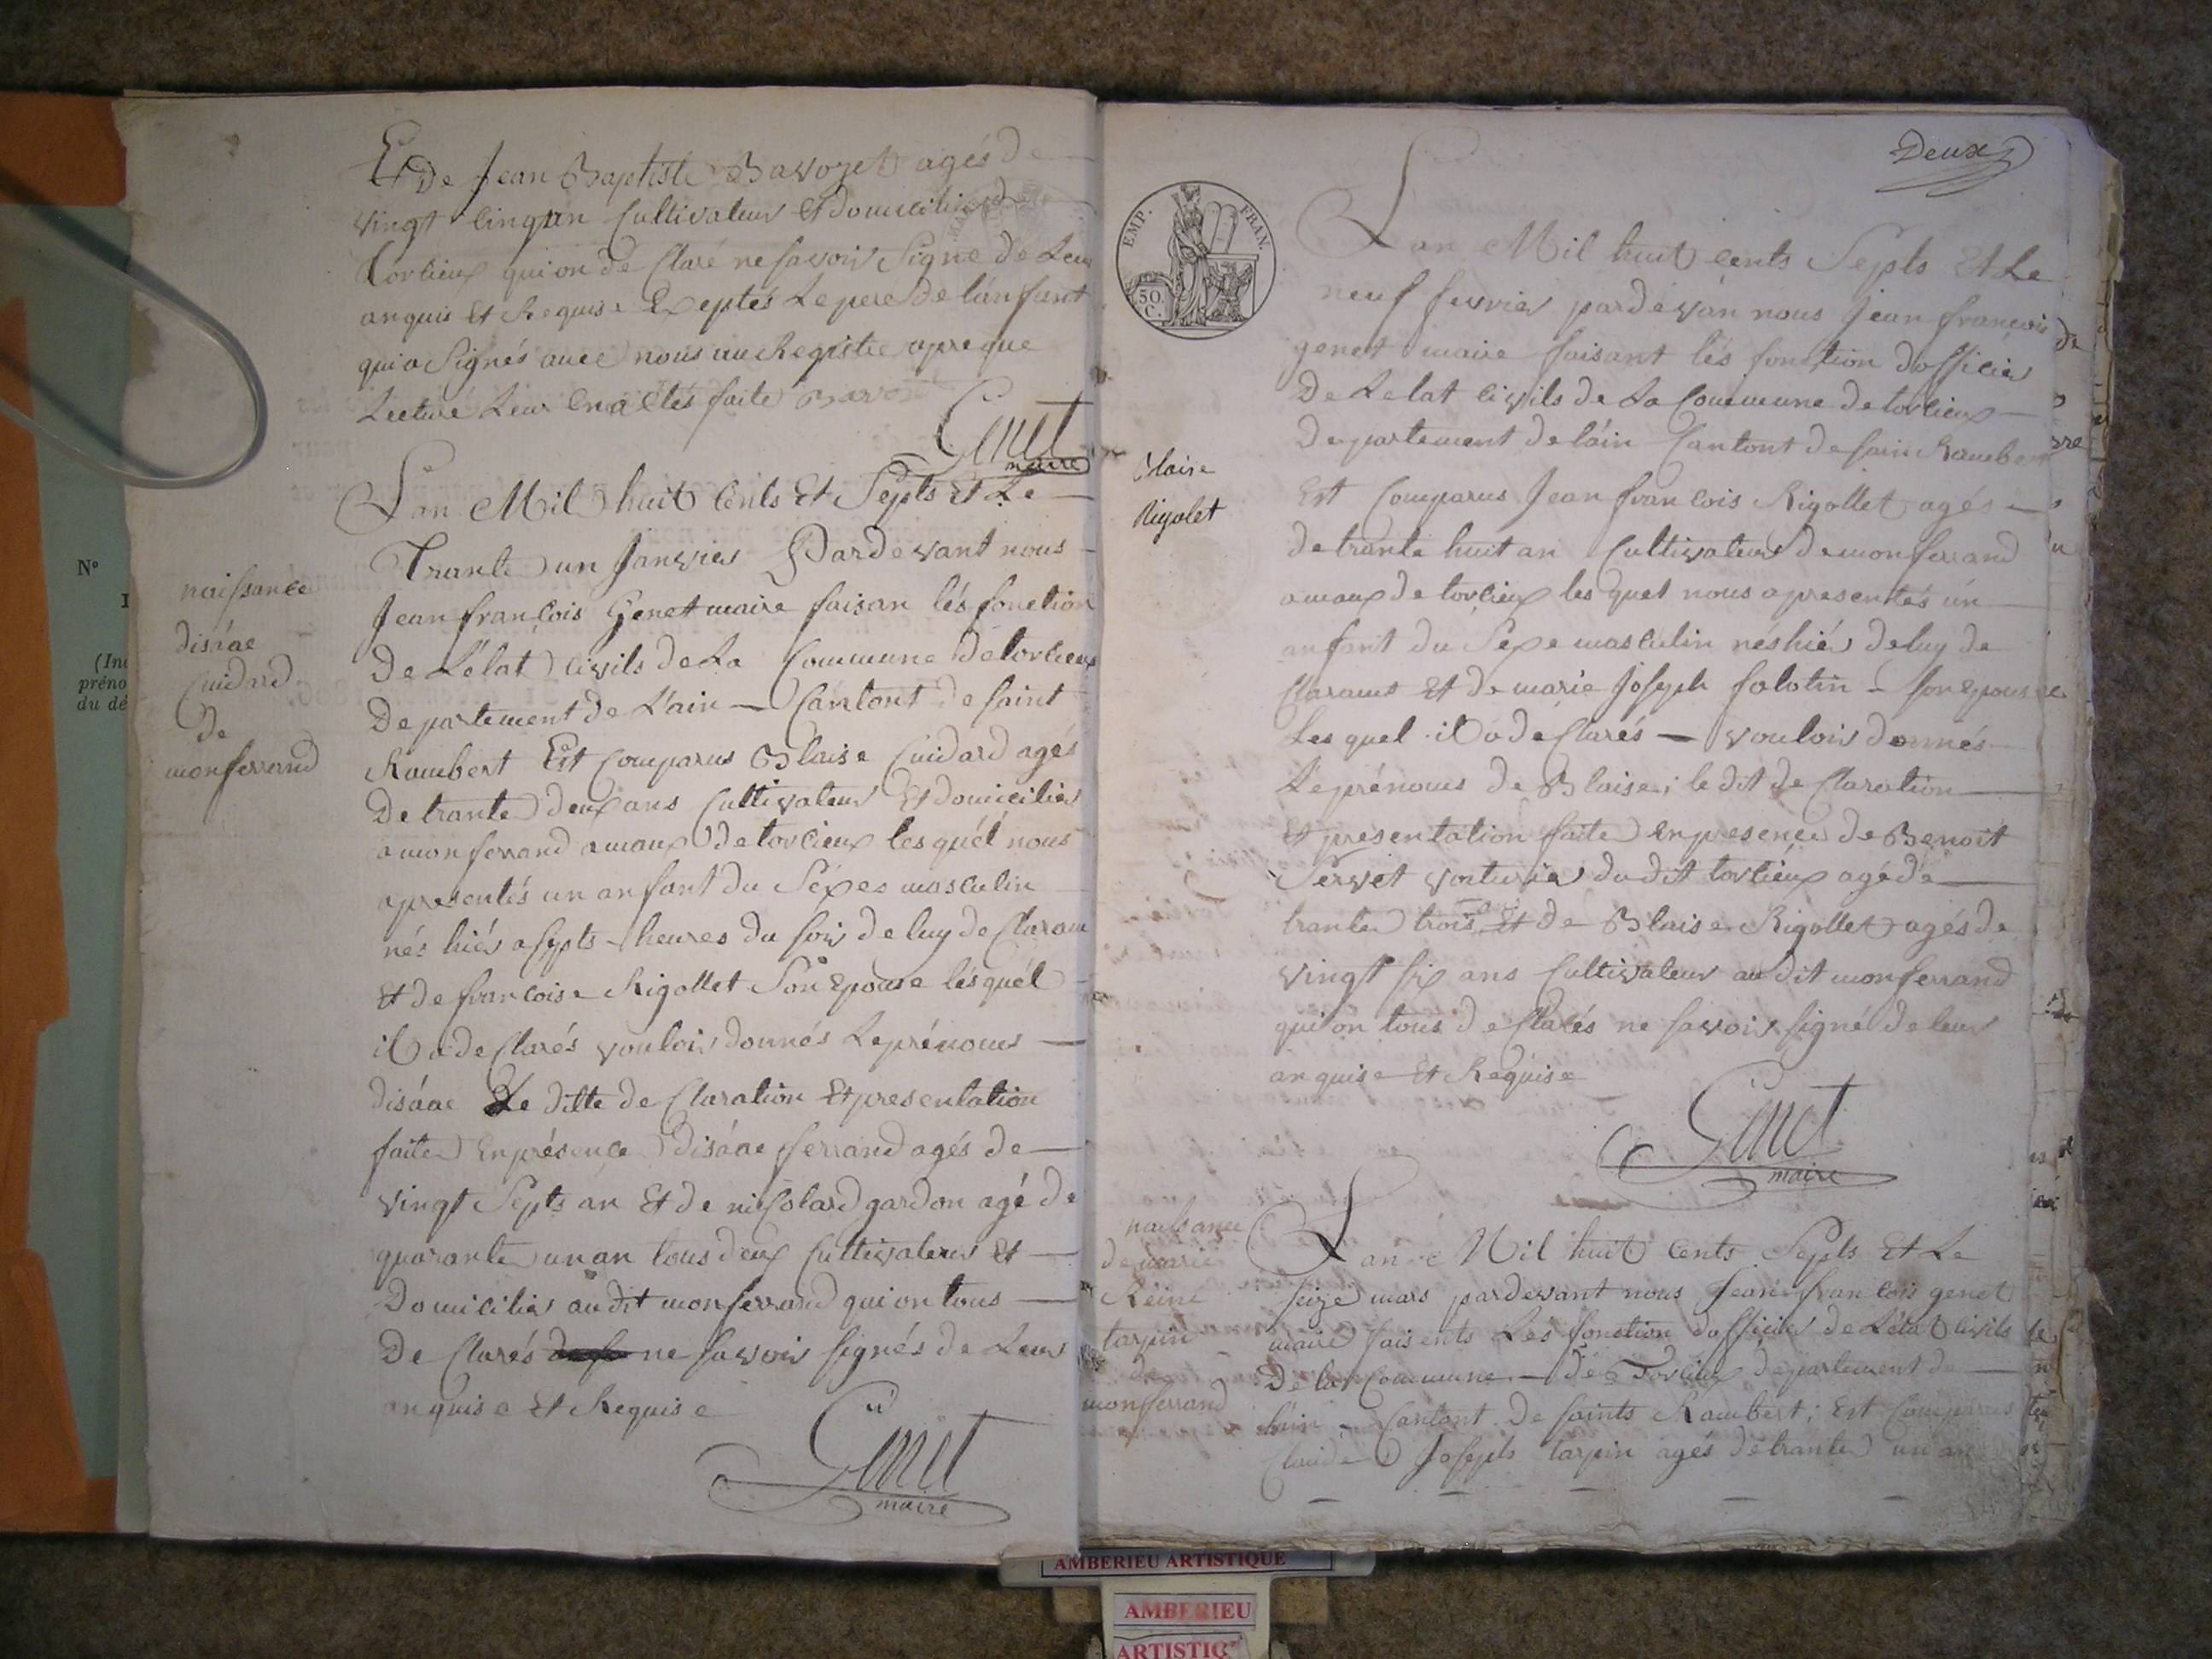 Et de Jean Baptiste Bavozet agés de
vingt cinq an Cultivateur et domicilié
torcieux qui on dé Claré ne savoir Signé de Leur
anquis Et Requise Exeptés Le pere de lánfant
qui a Signés avec nous au Registre apre que
Lecture Leur En a Etés faite
Genet
maire
naissance
disáac
Cuidard
de
monferrand
Lan Mil huit Cents Et Septs Et Le
Trante un Janvier Pardevant nous
Jean françois Genet maire faisan lés fonction
De Létat Civils de La Commune de torcieux
Departement de L'ain Cantont de Saint
Rambert Est Comparus Blaise Cuidard agés
De trante deux ans Cultivateur Et domicilier
a monferrand amaux de torcieux les quél nous
apresentés un anfant du Séxes masculin
nés hiér a septs heures du soir de luy de Claran
Et de francoise Rigollet Son Epouse lésquél
il a de Clarés vouloir donnés Le prénoms
disáac Le ditte de Claration Et presentation
faite En présence disáac ferrand agés de
vingt Septs an Et de nicolard gardon agé de
quarante un an tous deux Cultivateur Et
Domicilier au dit monferrand qui on tous
De Clarés ne savoir signés de Leur
anquise Et Requise
Genet
maire
Deux
EMP. FRAN.
50.
C.
Blaise
Rigolet
Lan Mil huit Cents Septs Et Le
neuf fevrier pardeván nous Jean francois
genet maire faisant lés fonction dofficier
De Letat Civils de La Commune de torcieux
Departement de láin Cantont de sain Rambert
Est Comparus Jean francois Rigollet agés
de trante huit an Cultivateur de monferrand
amaux de torcieux les quel nous apresentés ún
anfant du Sexe masculin nés hiér de luy de
Clarant Et de marie Joseph folotin Son epouse
Les quel il a de Clarés vouloir donnés
Le prénoms de Blaise; le dit de Claration
Et presentation faite En presence de Benoit
Servet voiturier du dit torcieux agé de
trante trois Et de Blaise Rigollet agés de
vingt six ans Cultivateur au dit monferrand
qui on tous de Clarés ne savoir signé de leur
anquise Et Requise
Genet
maire
naissance
de marie
Reine
tarpin
de
monferrand
Lan Mil huit Cents Septs Et Le
seize mars pardevant nous Jean francois genet
maire faisents Les fonction dofficier de Létat Civils
De la Commune de Torcieux departement de
láin Cantont de saints Rambert; Est Comparus
Claude Joseph tarpin agés de trante un an
N°
(In
préno
du dé
AMBERIEU ARTISTIQUE
AMBERIEU
ARTISTIQ